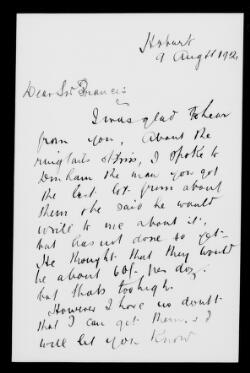 Hobart
9 Augst 192
Dear Sir Francis
I was glad to hear
from you, about the
ringtails skins, I spoke to
the man you got
the last lot from about
them & he said he would
write to me about it,
but has not done so yet.
He thought that they would
be about 60/- per doz.
but thats too high.
However I have no doubt
that I can get them, & I
will let you know